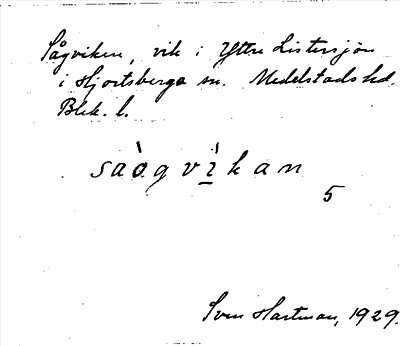 Sågviken, vik i Yttre Listersjön
i Hjortsberga sn. Medelstads hd.
Blek. l.
saògvì̲kan
5
Sven Hartman, 1929.